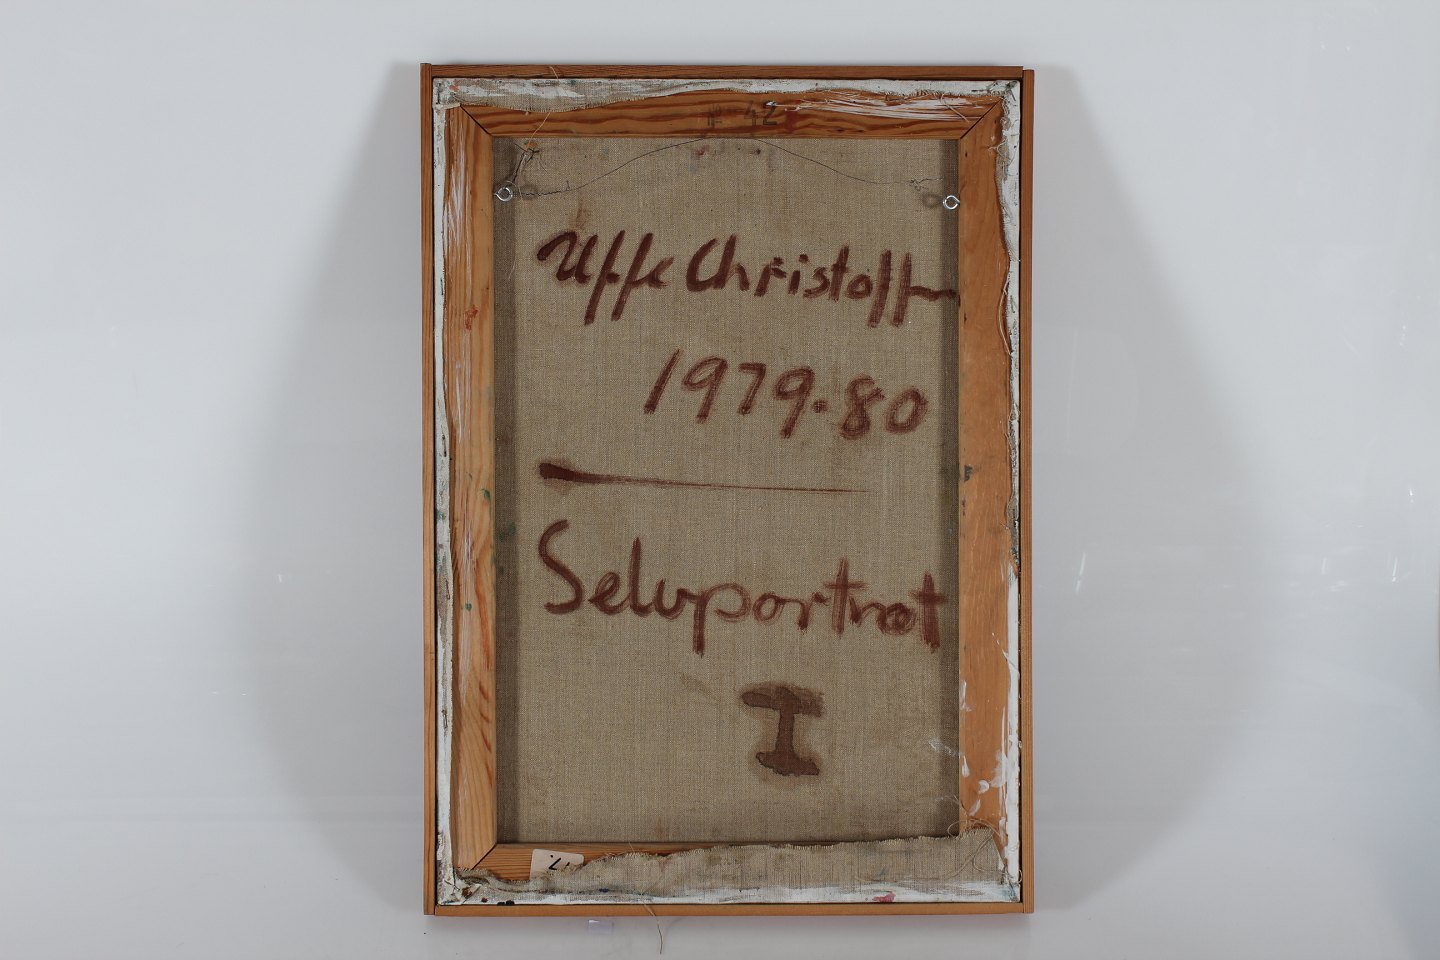 42
Uffe Christoff
1979-80
Selvportræt
I